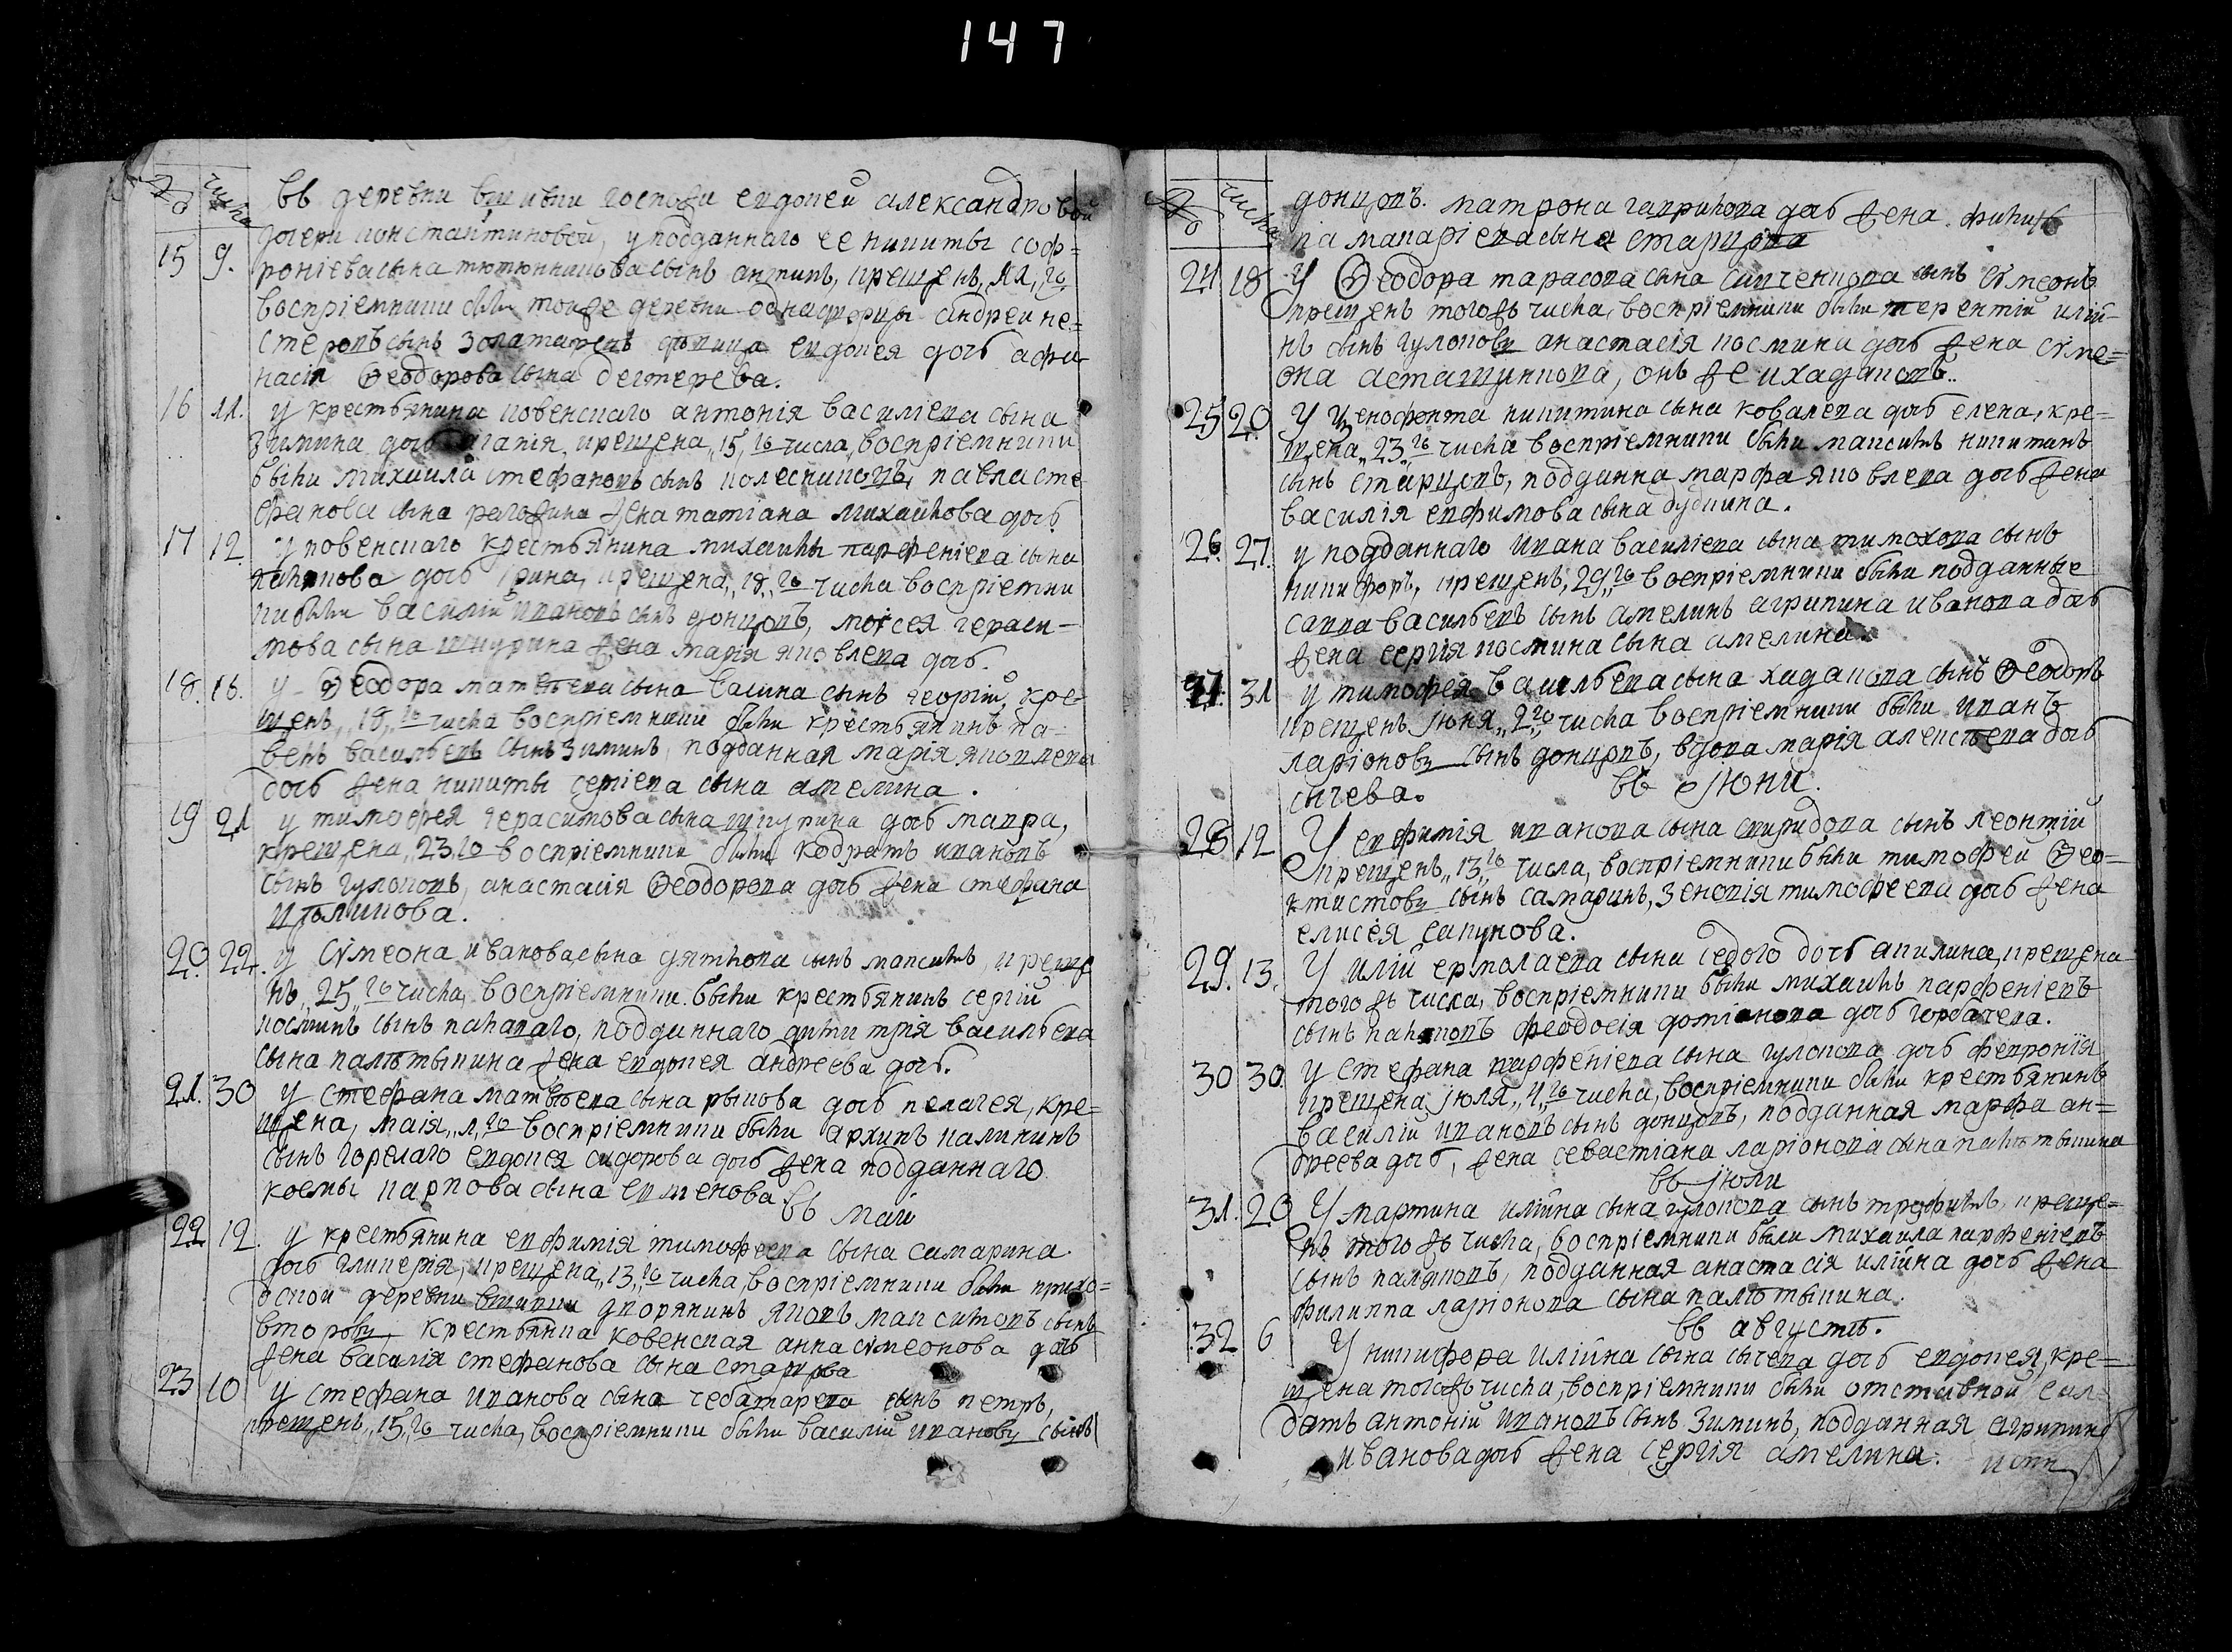 147
№ числа
въ деревни вшивки госпожи евдокеи александровой
дочери константиновой, у подданнаго ее никиты соф=
15 9. роніева сына тютюнникова сынъ антипъ, крещенъ, 11, го
воспріемники были тоиже деревни однадворцы андреи не=
стеровъ сынъ золатаревъ девица евдокея дочь афа
насія Ѳеодорова сына дегтерева.
16 11. у крестьянина ковенскаго антонія василіева сына
зимина дочь агапія, крещена, 15, го числа, воспріемники
были михаила стефановъ сынъ колесниковъ, павла сте
фанова сына рагозина жена татіана михаилова дочь
17 12 у ковенскаго крестьянина михаилы парфеніева сына
дочь ірина, крещена, 18, го числа воспріемни
ки были василій ивановъ сынъ донцовъ, моѵсея гераси-
мова сына шнурина жена марія яковлева дочь.
18. 16. у Ѳеодора матвѣева сына васина сынъ георгій, кре
щенъ, 18, го числа воспріемники были крестьянинъ па=
велъ васильевъ сынъ зиминъ, подданная марія яковлева
дочь жена никиты сергіева сына амелина.
19 21 у тимофея герасимова сына шнурина дочь мавра,
крещена, 23 го воспріемники были кодратъ ивановъ
сынъ гулоковъ, анастасія Ѳеодорова дочь жена стефана
20. 22. у сѵмеона иванова сына дятлова сынъ максимъ, креще
нъ, 25, го числа, воспріемники были крестьянинъ сергій
косминъ сынъ подданнаго димитрія васильева
сына жена евдокея андреева дочь.
21. 30 у стефана матвѣева сына рыкова дочь пелагея, кре=
щена, маія, 1, го воспріемники были архипъ калининъ
сынъ горелаго евдокея сидорова дочь жена подданнаго
космы карпова сына евменова въ маіи
22 12. у крестьянина евфимія тимофеева сына самарина
дочь гликерія, крещена, 13, го числа, воспріемники были прихо=
дскои деревни вшивки дворянинъ яковъ максимовъ сынъ
второвъ крестьянка ковенская анна сѵмеонова дочь
жена василія стефанова сына старцова
23 10 у стефана иванова сына чебатарева сынъ петръ,
крещенъ, 15, го числа, воспріемники были василій ивановъ сынъ
№ числа
донцовъ. матрона гаврилова дочь жена филип
па макаріева сына старцова
24 18 У Ѳеодора тарасова сына сынъ сѵмеонъ
крещенъ тогожъ числа, воспріемники были терентій илій-
нъ сынъ гулоковъ анастасія космина дочь жена сѵме=
она асташункова, онъ же и хадаковъ..
25 20 У Ѯенофонта никитина сына ковалева дочь елена, кре=
щена, 23, го числа воспріемники были максимъ никитинъ
сынъ старцовъ, поддана марфа яковлева дочь жена
василія евфимова сына дудкина.
26. 27. у подданнаго ивана василіева сына тимохова сынъ
никифоръ, крещенъ, 29, го воспріемники были подданные
савва васильевъ сынъ амелинъ агрипина иванова дочь
жена сергія космина сына амелина.
27. 31 у тимофея васильева сына хадакова сынъ Ѳеодоръ
крещенъ іюня, 2, го числа воспріемники были иванъ
ларіоновъ сынъ донцовъ, вдова марія алексѣева дочь
сычева. въ іюни.
28 12 У евфимія иванова сына спиридова сынъ леонтій
крещенъ, 13, го числа, воспріемники были тимофей Ѳео=
ктистовъ сынъ самаринъ, зеновія тимофеева дочь жена
елисея сапунова.
29. 13. У иліи ермолаева сына седого дочь акилина, крещена
тогожъ числа, воспріемники были михаилъ парфеніевъ
сынъ феодосія домтанова дочь горбачева.
30 30 у стефана парфеніева сына гулокова дочь февронія
крещена, іюля, 4, го числа, воспріемники были крестьянинъ
василіи ивановъ сынъ донцовъ, подданная марфа ан=
дреева дочь, жена севастіана ларіонова сына
въ іюли
31. 20 У мартина иліина сына гулокова сынъ трофимъ, креще=
нъ того жъ числа, воспріемники были михаила парфеніевъ
сынъ подданная анастасія иліина дочь жена
филиппа ларіонова сына
въ августѣ.
32 6 У никифора иліина сына сычева дочь евдокея, кре=
щена тогожъ числа, воспріемники были отставной сал=
датъ антоній ивановъ сынъ зиминъ, подданная агрипина
иванова дочь жена сергія амелина.